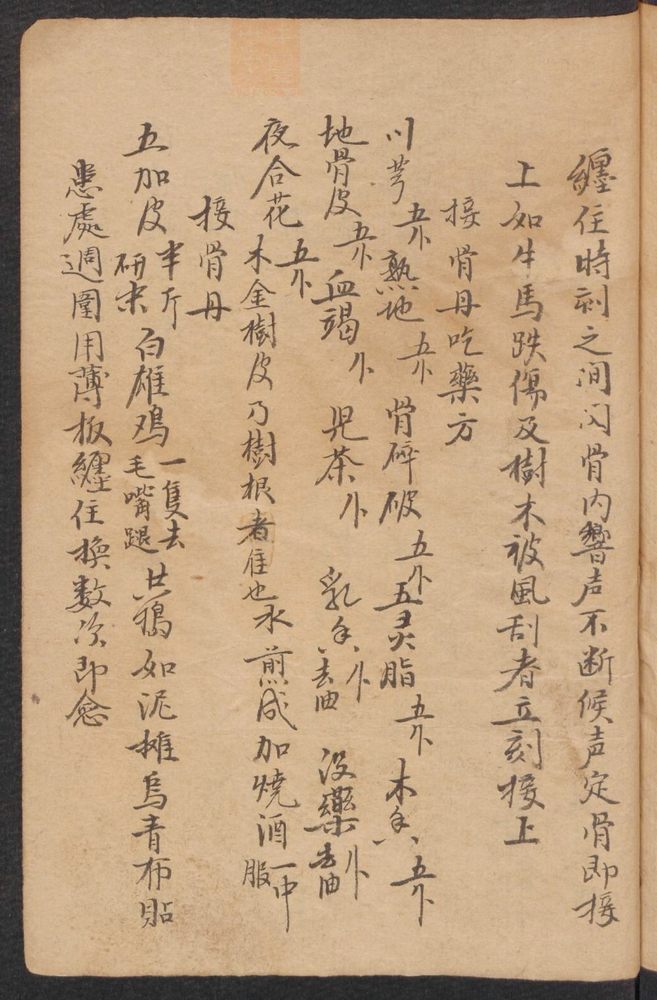 纏住時刻之间闪骨内響声不断候声定骨即接
上如牛馬跌傷及樹木被風刮者立刻接上
接骨丹吃藥方
川芎 五卜 熟地 五卜 骨碎破 五卜 五灵脂 五卜 木香 五卜
地骨皮 五卜 血竭 卜 児茶 卜 乳香 卜 去油 没藥 卜 去油
夜合花 五卜 木金樹皮乃樹根者佳也水煎成加燒酒一中服
接骨丹
五加皮 半斤 研末 白雄鸡 一隻去毛嘴腿 共搗如泥摊烏青布貼
患處週圍用薄板纏住換数次即愈